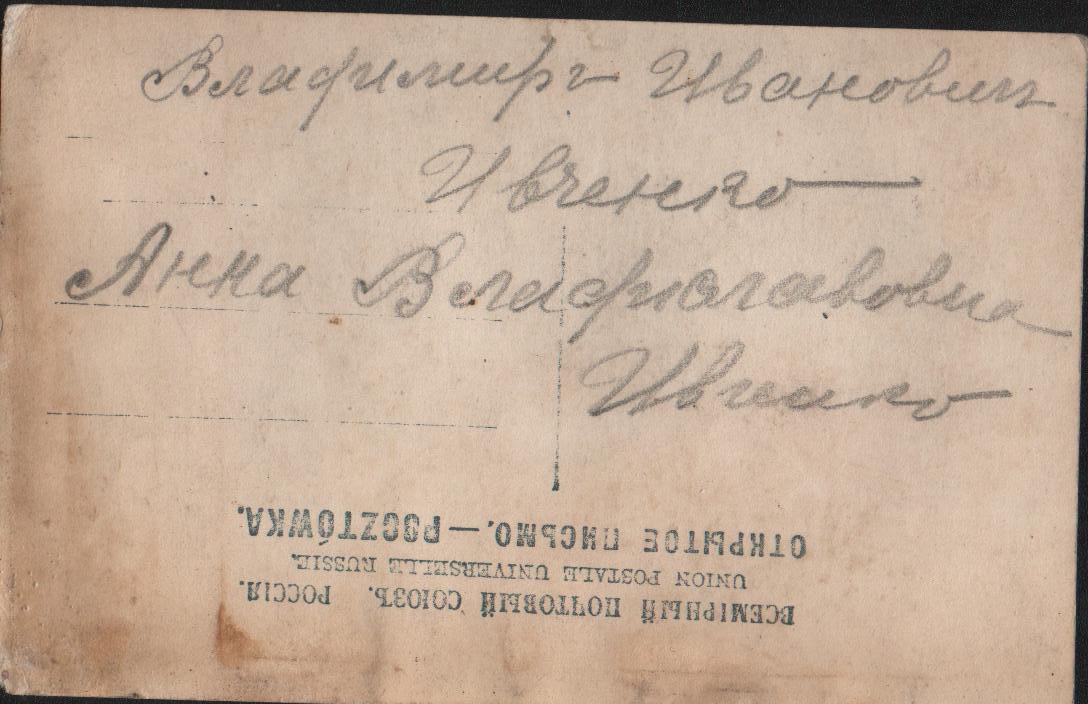 Владимиръ Ивановичъ
Ивченко
Анна Владиславовна
Ивченко
ВСЕМІРНЫЙ ПОЧТОВЫЙ СОЮЗЪ. РОССІЯ.
UNION POSTALE UNIVERSELLE RUSSIE.
ОТКРЫТОЕ ПИСЬМО.—POCZTÓWKA.